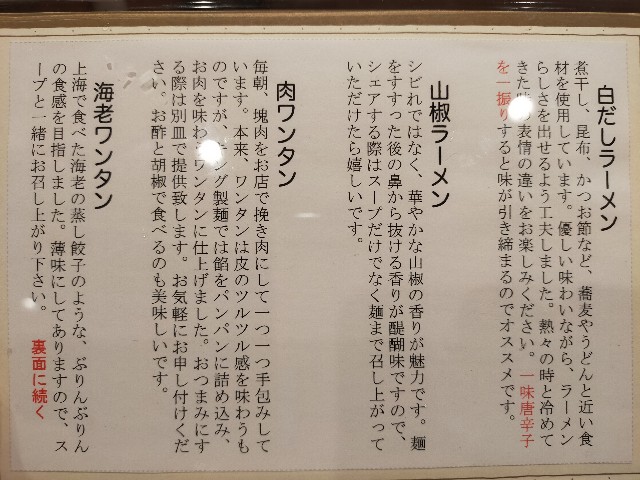 白だしラーメン
煮干し、昆布、かつお節など、蕎麦やうどんと近い食
材を使用しています。優しい味わいながら、ラーメン
らしさを出せるよう工夫しました。熱々の時と冷めて
きた 表情の違いをお楽しみください。一味唐辛子
を一振りすると味が引き締まるのでオススメです。
山椒ラーメン
シビれではなく、華やかな山椒の香りが魅力です。麺
をすすった後の鼻から抜ける香りが醍醐味ですので、
シェアする際はスープだけでなく麺まで召し上がって
いただけたら嬉しいです。
肉ワンタン
毎朝、塊肉をお店で挽き肉にして一つ一つ手包みして
います。本来、ワンタンは皮のツルツル感を味わうも
のですが、 製麺では餡をパンパンに詰め込み、
お肉を味わ ワンタンに仕上げました。おつまみにす
る際は別皿で提供致します。お気軽にお申し付けくだ
さい。お酢と胡椒で食べるのも美味しいです。
海老ワンタン
上海で食べた海老の蒸し餃子のような、ぷりんぷりん
の食感を目指しました。薄味にしてありますので、ス
ープと一緒にお召し上がり下さい。
裏面に続く